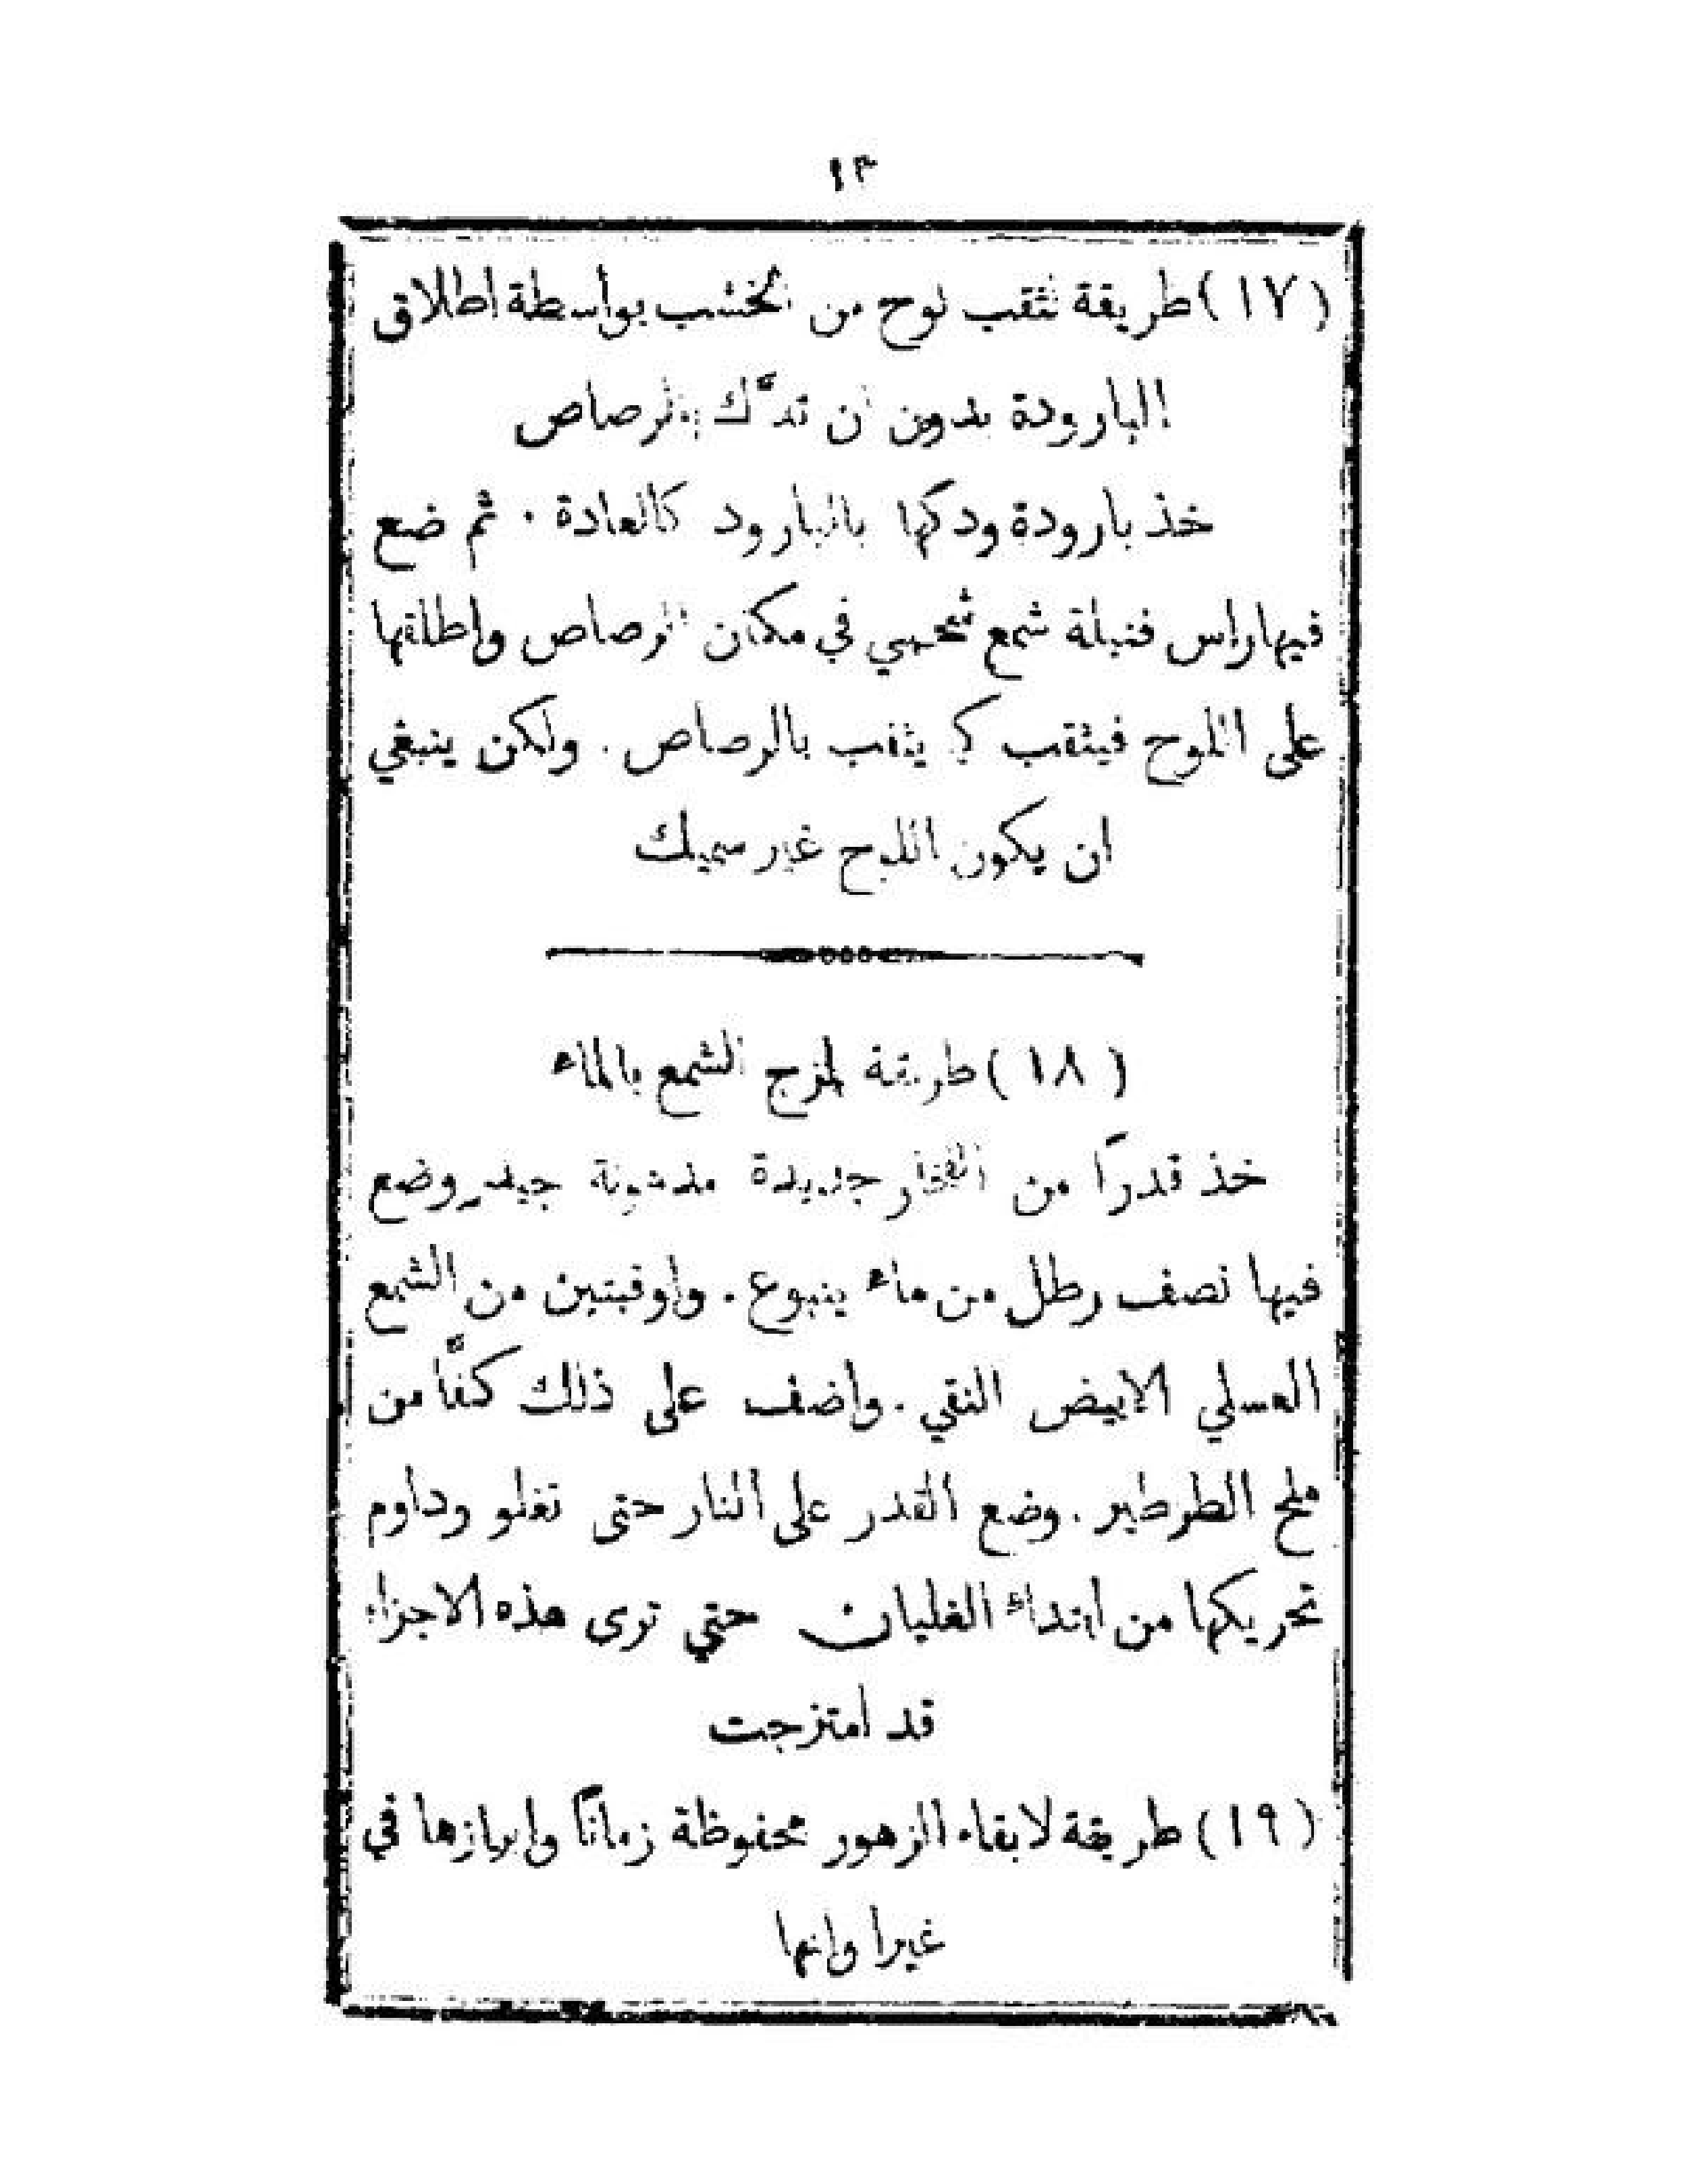 ١٣
(١٧) طريقة لثقب لوح من الخشب بواسطة اطلاق
البارودة بدون ان تدكّ بالرصاص
خذ بارودة ودكها بالبارود كالعادة . ثم ضع
فيها راس فتيلة شمع شحمي في مكان الرصاص واطلقها
على اللوح فيثقب كما يثقب بالرصاص . ولكن ينبغي
ان يكون اللوح غير سميك
(١٨) طريقة لمزج الشمع بالماء
خذ قدرًا من الفخار جديدة مدهونة جيد وضع
فيها نصف رطل من ماء ينبوع . واوقيتين من الشمع
العسلي الابيض النقي . واضف على ذلك كفًّا من
ملح الطرطير . وضع القدر على النار حتى تغلو وداوم
تحريكها من ابتداء الغليان حتى ترى هذه الاجزاء
قد امتزجت
(١٩) طريقة لابقاء الزهور محفوظة زمانًا وابرازها في
غير اوانها